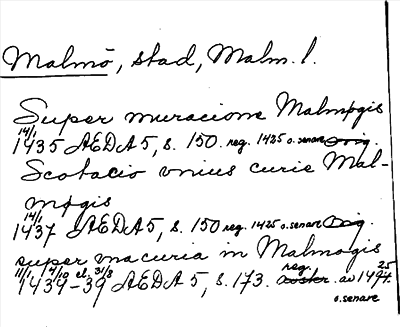 Malmö, stad, Malm. l.
Super muracione Malmøgis
14/1
1435 AEDA 5, s. 150 reg. 1425 o. senare orig.
Scotacio vnius curie Mal-
møgis
14/1
1437 AEDA 5, s. 150 reg. 1425 o. senare Orig.
super una curia in Malmøgis
11/1, 4/10 el. 3/8 reg. 25
1434-39 AEDA 5, s. 173. av 1494.
o. senare